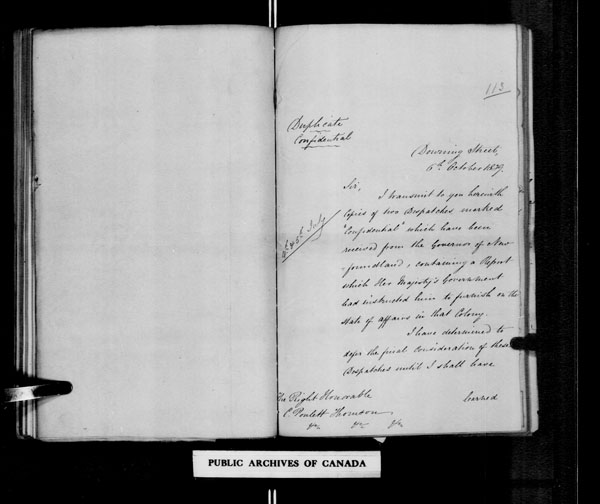 113
Duplicate
Confidential
Downing Street,
5th October 1839.
Sir,
I transmit to you herewith
Copies of two Despatches marked
"Confidential" which have been
received from the Governor of New-
foundland, containing a Report
which Her Majesty's Government
had instructed him to furnish on the
state of affairs in that Colony.
4th & 5th July
I have determined to
defer the final consideration of these
Despatches until I shall have
learned
The Right Honorable
C. Poulett Thomson
&c. &c. &c.
PUBLIC ARCHIVES OF CANADA